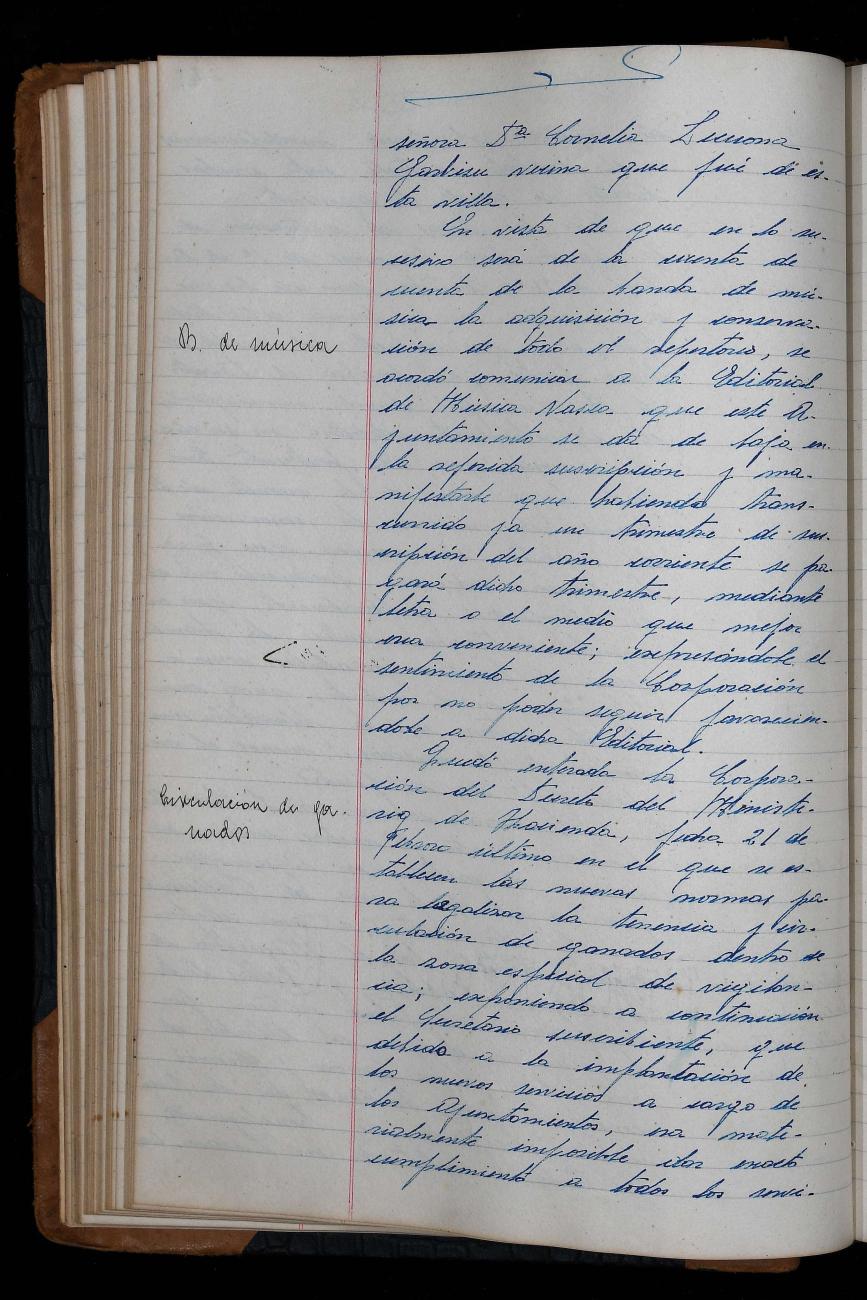 señora Dª Cornelia Lecuona
Garbisu vecina que fué de es-
ta villa.
En vista de que en lo su-
cesivo será de la cuenta de
cuenta de la banda de mú-
B. de música
sica la adquisición y conserva-
ción de todo el repertorio, se
acordó comunicar a la Editorial
de Música Nassea que este A-
yuntamiento se dá de baja en
la referida suscripción y ma-
nifestarle que habiendo trans-
currido ya un trimestre de sus-
cripción del año corriente se pa-
gará dicho trimestre, mediante
letra o el medio que mejor
crea conveniente; expresándole el
sentimiento de la Corporación
por no poder seguir favorecien-
dole a dicha Editorial.
Circulación de ga-
nados
Quedó enterada la Corpora-
ción del Decreto del Ministe-
rio de Hacienda, fecha 21 de
Febrero último en el que se es-
tablecen las nuevas normas pa-
ra legalizar la tenencia y cir-
culación de ganados dentro de
la zona especial de vigilan-
cia; exponiendo a continuación
el Secretario suscribiente, que
debido a la implantación de
los nuevos servicios a cargo de
los Ayuntamientos, era mate-
rialmente imposible dar exacto
cumplimiento a todos los servi-